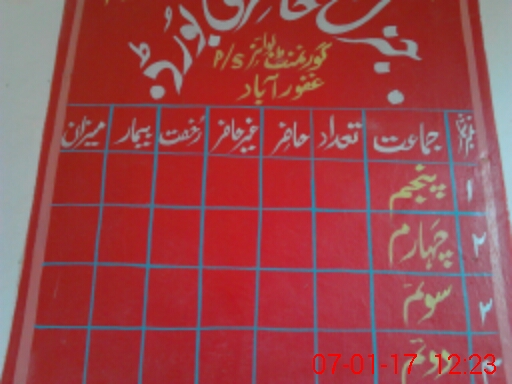 جنرل حاضری بورڈ
گورنمنٹ بوائز P/S
غفور آباد
نمبر شمار جماعت تعداد حاضر غیر حاضر رخصت بیمار میزان
۱ پنجم
۲ چہارم
۳ سوئم
دوئم
07-01-17 12:23